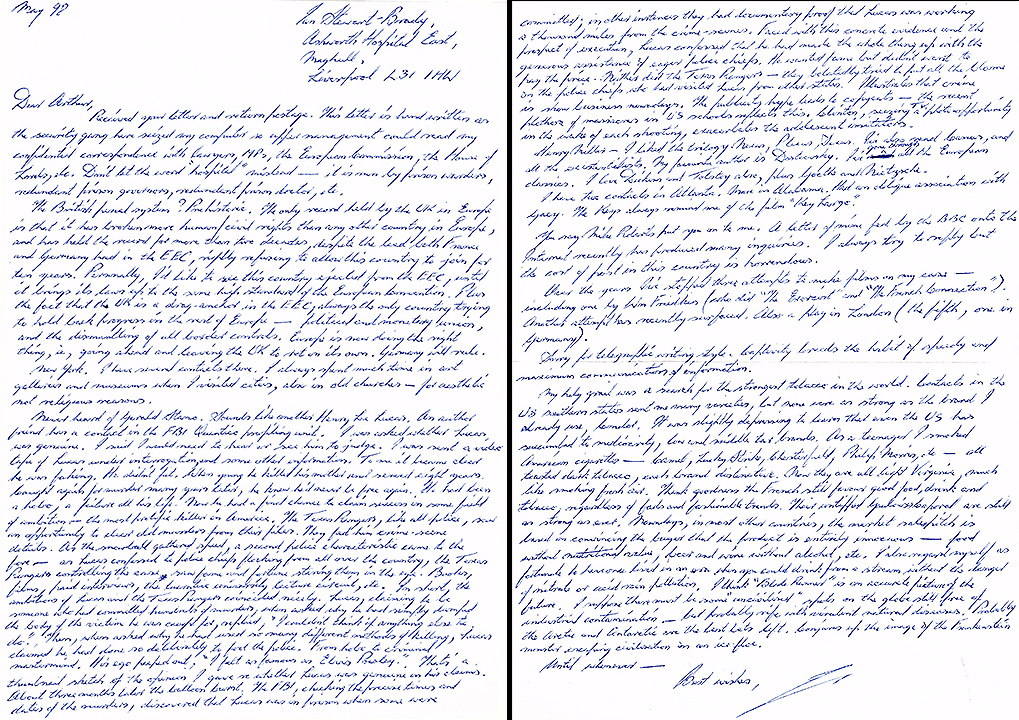 May 98
Ian Stewart-Brady,
Ashworth Hospital East,
Maghull,
Liverpool L31 1HW
Dear Arthur,
Received your letter and return postage. This letter is hand written as
the security gang here seized my computer so upper management could read my
confidential correspondence with lawyers, MPs, the European Commission, the House of
Lords, etc. Don't let the word hospital mislead — it is run by prison warders,
redundant prison governors, redundant prison doctor, etc.
The British penal system? Prehistoric. The only record held by the UK in Europe
is that it has broken more human/civil rights than any other country in Europe,
and has held the record for more than two decades, despite the lead both France
and Germany had in the EEC, rightly refusing to allow this country to join for
ten years. Personally, I'd like to see this country ejected from the EEC, until
it brings its laws up to the same high standard of the European Convention. Plus
the fact that the UK is a drag-anchor in the EEC, always the only country trying
to hold back progress in the rest of Europe — political and monetary union,
and the dismantling of all border controls. Europe is now doing the right
thing, ie, going ahead and leaving the UK to rot on its own. Germany will rule.
New York. I have several contacts there. I always spent much time in art
galleries and museums when I visited cities, also in old churches — for aesthetic
not religious reasons.
Never heard of Gerald Stone. Sounds like another Henry Lee Lucas. An author
friend has a contact in the FBI Quantico profiling unit. I was asked whether Lucas
was genuine. I said I would need to hear or see him to judge. I was sent a video
tape of Lucas under interrogation and some other information. To me it became clear
he was faking. He
caught again for murder many years later, he knew he'd never be free again. He had been
a hobo, a failure all his life. Now he had a final chance to claim success in some field
of ambition — the most prolific killer in America. The Texas Rangers, like all police, saw
an opportunity to clear old murders from their files. They fed him crime-scene
details. As the snowball gathered speed, a second police characteristic came to the
fore — as Lucas confessed to police chiefs flocking from all over the country, the Texas
Rangers controlling the case fame and fortune staring them in the eye. Books,
films, paid interviews, the university lecture circuit, etc. In short, the
ambitions of Lucas and the Texas Rangers coincided nicely. Lucas, claiming to be
someone who had committed hundreds of murders, when asked why he had simply dumped
the body of the victim he was caught for, replied, "I couldn't think of anything else to
do." Then, when asked why he had used so many different methods of killing, Lucas
claimed he had done so deliberately to fool the police. From hobo to criminal
mastermind. His ego peeped out, "I felt as famous as Elvis Presley." That's a
thumbnail sketch of the opinion I gave re whether Lucas was genuine in his claims.
About three months later the balloon burst. The FBI, checking the precise times and
dates of the murders, discovered that Lucas was in prison when some were
committed; in other instances they had documentary proof that Lucas was working
a thousand miles from the crime-scenes. Faced with this concrete evidence and the
prospect of execution, Lucas confessed that he had made the whole thing up with the
generous assistance of eager police chiefs. He wanted fame but didn't want to
pay the price. Neither did the Texas Rangers — they belatedly tried to put all the blame
on the police chiefs who had visited Lucas from other states. Illustrates that crime
is show business nowadays. The publicity hype leads to copycats — the recent
plethora of massacres in US schools reflects this, Clinton, seizing a photo-opportunity
in the wake of each shooting, exacerbates the adolescent imitators.
Henry Miller — I liked the trilogy Nexus, Plexus, Sexus. I've also read Camus, and
all the existentialists. My favourite author is Dostoevsky. I've been through all the European
classics. I love Pushkin and Tolstoy also, plus Goethe and Nietzsche.
I have two contacts in Atlanta. One in Alabama, that an oblique association with
Lgacy. The Keys always remind me of the film "Key Largo."
You say Mike Roberts put you on to me. A letter of mine fed by the BBC onto the
Internet recently has produced many inquiries. I always try to reply but
the cost of post in this country is horrendous.
Over the years I've stopped three attempts to make films on my case —
including one by John Friedkin (who did "The Exorcist" and "The French Connection").
Another attempt has recently surfaced. Also a play in London (the fifth, one in
Germany).
Sorry for telegraphic writing style. Captivity breeds the habit of speedy and
maximum communication of information.
My holy grail was a search for the strongest tobacco in the world. Contacts in the
US southern states sent me many varieties, but none were as strong as the brand I
already use. It was slightly depressing to learn that even the US has
succumbed to mediocrity, low and middle tar brands. As a teenager I smoked
American cigarettes — Camel, Lucky Strike, Chesterfield, Philip Morris, etc — all
toasted dark tobacco, each brand distinctive. Now they are all light Virginia, much
like smoking fresh air. Thank goodness the French still favour good food, drink and
tobacco, regardless of fads and fashionable trends. Their untipped Gauloises are still
as strong as ever. Nowadays, in most other countries, the market salespitch is
based on convincing the buyer that the product is entirely innocuous — food
without nutritional value, beer and wine without alcohol, etc. I also regard myself as
fortunate to have once lived in an era when you could drink from a stream without the danger
of nitrate or acid rain pollution. I think "Blade Runner" is an accurate picture of the
future. I suppose there must be some 'uncivilised' spots on the globe still free of
industrial contamination — but probably rife with virulent natural diseases. Probably
the Arctic and Antarctic are the best bets left. Conjures up the image of the Frankenstein
monster escaping civilisation on an ice floe.
Until whenever —
Best wishes,